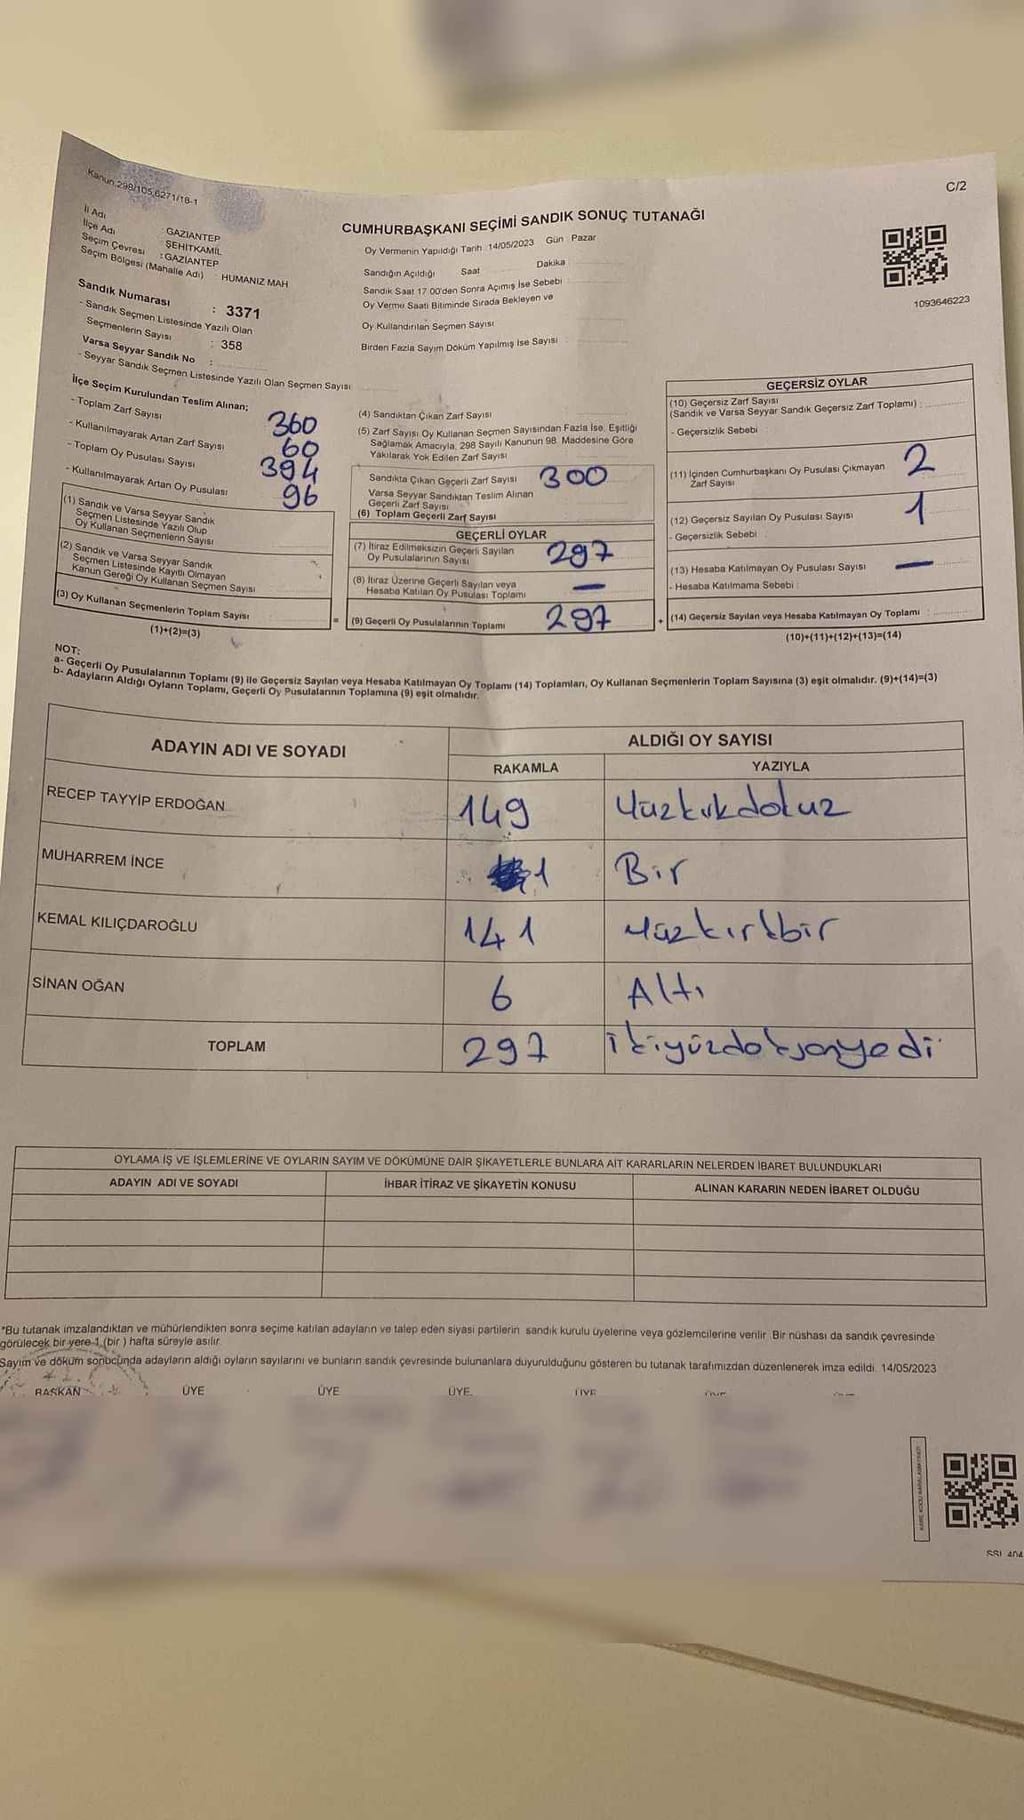 Kanun.298/105,6271/18-1
C/2
CUMHURBAŞKANI SEÇİMİ SANDIK SONUÇ TUTANAĞI
İl Adı : GAZİANTEP
İlçe Adı : ŞEHİTKAMİL
Seçim Çevresi : GAZİANTEP
Seçim Bölgesi (Mahalle Adı) : HUMANIZ MAH
Sandık Numarası : 3371
- Sandık Seçmen Listesinde Yazılı Olan
Seçmenlerin Sayısı : 358
Varsa Seyyar Sandık No :
- Seyyar Sandık Seçmen Listesinde Yazılı Olan Seçmen Sayısı
Oy Vermenin Yapıldığı Tarih : 14/05/2023 Gün : Pazar
Sandığın Açıldığı Saat Dakika
Sandık Saat 17.00'den Sonra Açımış İse Sebebi
Oy Verme Saati Bitiminde Sırada Bekleyen ve
Oy Kullandırılan Seçmen Sayısı
Birden Fazla Sayım Döküm Yapılmış İse Sayısı
1093646223
İlçe Seçim Kurulundan Teslim Alınan;
- Toplam Zarf Sayısı 360
- Kullanılmayarak Artan Zarf Sayısı 60
- Toplam Oy Pusulası Sayısı 394
- Kullanılmayarak Artan Oy Pusulası 96
(1) Sandık ve Varsa Seyyar Sandık
Seçmen Listesinde Yazılı Olup
Oy Kullanan Seçmenlerin Sayısı
(2) Sandık ve Varsa Seyyar Sandık
Seçmen Listesinde Kayıtlı Olmayan
Kanun Gereği Oy Kullanan Seçmen Sayısı
(3) Oy Kullanan Seçmenlerin Toplam Sayısı
(1)+(2)=(3)
=
(4) Sandıktan Çıkan Zarf Sayısı
(5) Zarf Sayısı Oy Kullanan Seçmen Sayısından Fazla İse, Eşitliği
Sağlamak Amacıyla, 298 Sayılı Kanunun 98. Maddesine Göre
Yakılarak Yok Edilen Zarf Sayısı
Sandıkta Çıkan Geçerli Zarf Sayısı 300
Varsa Seyyar Sandıktan Teslim Alınan
Geçerli Zarf Sayısı
(6) Toplam Geçerli Zarf Sayısı
GEÇERLİ OYLAR
(7) İtiraz Edilmeksizin Geçerli Sayılan
Oy Pusulalarının Sayısı 297
(8) İtiraz Üzerine Geçerli Sayılan veya
Hesaba Katılan Oy Pusulası Toplamı —
(9) Geçerli Oy Pusulalarının Toplamı 297
+
GEÇERSİZ OYLAR
(10) Geçersiz Zarf Sayısı
(Sandık ve Varsa Seyyar Sandık Geçersiz Zarf Toplamı) :
- Geçersizlik Sebebi :
(11) İçinden Cumhurbaşkanı Oy Pusulası Çıkmayan
Zarf Sayısı 2
(12) Geçersiz Sayılan Oy Pusulası Sayısı 1
- Geçersizlik Sebebi :
(13) Hesaba Katılmayan Oy Pusulası Sayısı —
- Hesaba Katılmama Sebebi :
(14) Geçersiz Sayılan veya Hesaba Katılmayan Oy Toplamı :
(10)+(11)+(12)+(13)=(14)
NOT:
a- Geçerli Oy Pusulalarının Toplamı (9) ile Geçersiz Sayılan veya Hesaba Katılmayan Oy Toplamı (14) Toplamları, Oy Kullanan Seçmenlerin Toplam Sayısına (3) eşit olmalıdır. (9)+(14)=(3)
b- Adayların Aldığı Oyların Toplamı, Geçerli Oy Pusulalarının Toplamına (9) eşit olmalıdır.
ADAYIN ADI VE SOYADI ALDIĞI OY SAYISI
RAKAMLA YAZIYLA
RECEP TAYYİP ERDOĞAN 149 Yüzkırkdokuz
MUHARREM İNCE 1 Bir
KEMAL KILIÇDAROĞLU 141 Yüzkırkbir
SİNAN OĞAN 6 Altı
TOPLAM 297 İkiyüzdoksanyedi
OYLAMA İŞ VE İŞLEMLERİNE VE OYLARIN SAYIM VE DÖKÜMÜNE DAİR ŞİKAYETLERLE BUNLARA AİT KARARLARIN NELERDEN İBARET BULUNDUKLARI
ADAYIN ADI VE SOYADI İHBAR İTİRAZ VE ŞİKAYETİN KONUSU ALINAN KARARIN NEDEN İBARET OLDUĞU
*Bu tutanak imzalandıktan ve mühürlendikten sonra seçime katılan adayların ve talep eden siyasi partilerin sandık kurulu üyelerine veya gözlemcilerine verilir. Bir nüshası da sandık çevresinde
görülecek bir yere 1 (bir) hafta süreyle asılır.
Sayım ve döküm sonucunda adayların aldığı oyların sayılarını ve bunların sandık çevresinde bulunanlara duyurulduğunu gösteren bu tutanak tarafımızdan düzenlenerek imza edildi. 14/05/2023
BAŞKAN ÜYE ÜYE ÜYE ÜYE